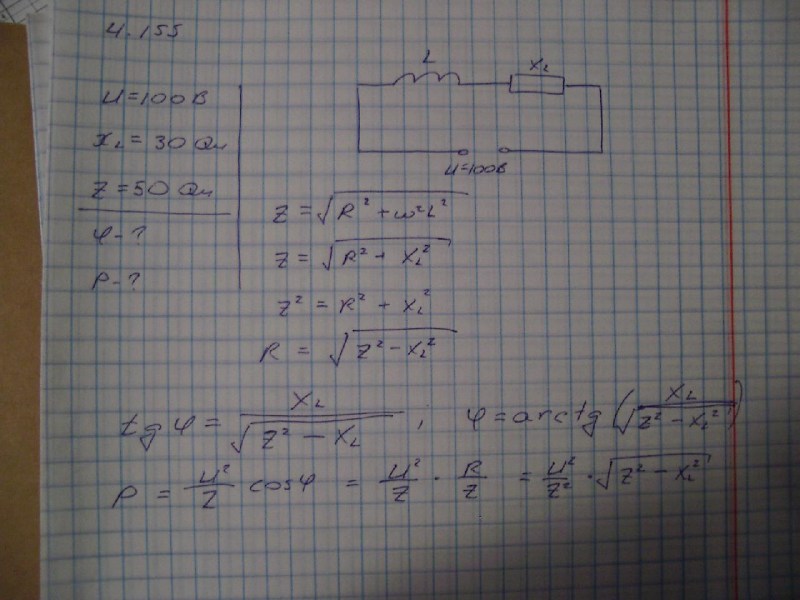 4.155
U=100В
X_L = 30 Ом
Z = 50 Ом
φ-?
P-?
L
X_L
U=100В
Z = √(R² + ω²L²)
Z = √(R² + X_L²)
Z² = R² + X_L²
R = √(Z² - X_L²)
tg φ = X_L / √(Z² - X_L) ; φ = arctg (X_L / √(Z² - X_L²))
P = U²/Z cosφ = U²/Z · R/Z = U²/Z² · √(Z² - X_L²)